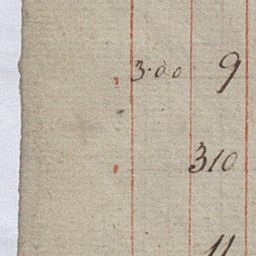 3.00 9
310
11